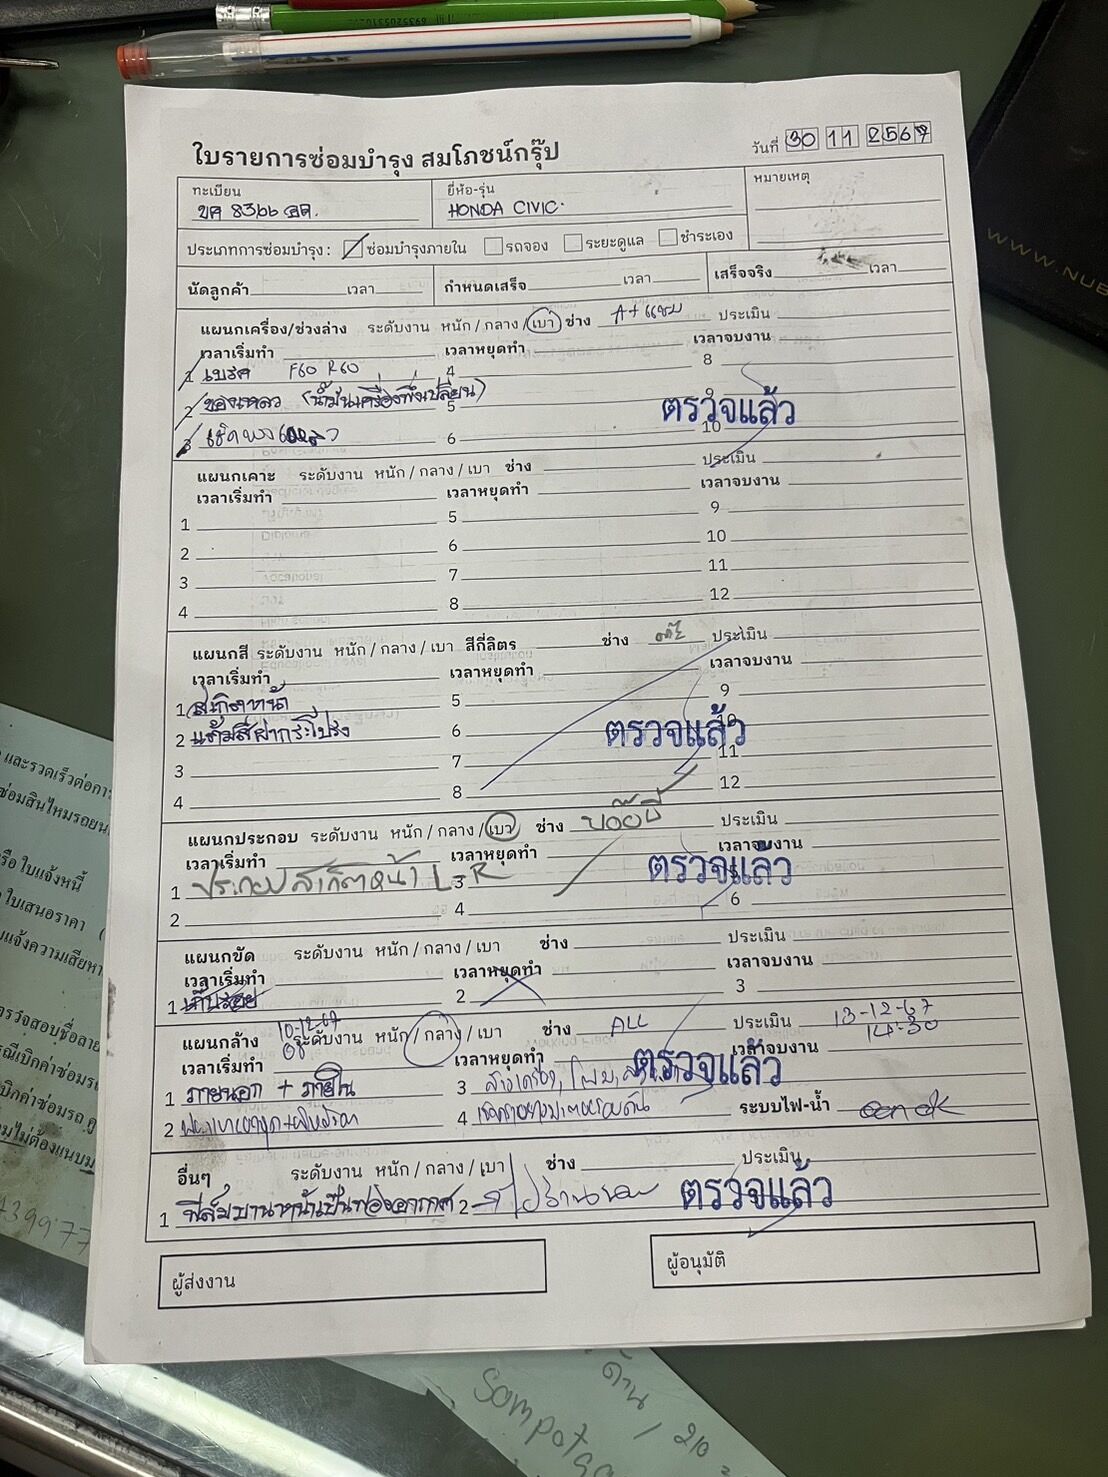 ใบรายการซ่อมบำรุง สมโภชน์กรุ๊ป
วันที่ 30 11 2567
ทะเบียน
ยี่ห้อ-รุ่น
หมายเหตุ
HONDA CIVIC.
ประเภทการซ่อมบำรุง : ซ่อมบำรุงภายใน รถจอง ระยะดูแล ชำระเอง
นัดลูกค้า เวลา กำหนดเสร็จ เวลา เสร็จจริง เวลา
แผนกเครื่อง/ช่วงล่าง ระดับงาน หนัก / กลาง / เบา ช่าง A+ แชม ประเมิน
เวลาเริ่มทำ เวลาหยุดทำ เวลาจบงาน
1 เบรค F60 R60 4 8
2 ของเหลว (น้ำมันเครื่องพึ่งเปลี่ยน) 5 9
3 6 10
ตรวจแล้ว
แผนกเคาะ ระดับงาน หนัก / กลาง / เบา ช่าง ประเมิน
เวลาเริ่มทำ เวลาหยุดทำ เวลาจบงาน
1 5 9
2 6 10
3 7 11
4 8 12
แผนกสี ระดับงาน หนัก / กลาง / เบา สีกี่ลิตร ช่าง ประเมิน
เวลาเริ่มทำ เวลาหยุดทำ เวลาจบงาน
1 สเกิตหน้า 5 9
2 แต้มสีฝากระโปรง 6 10
ตรวจแล้ว
3 7 11
4 8 12
แผนกประกอบ ระดับงาน หนัก / กลาง / เบา ช่าง ประเมิน
เวลาเริ่มทำ เวลาหยุดทำ เวลาจบงาน
1 ประกอบสเกิตหน้า L-R 3 5
ตรวจแล้ว
2 4 6
แผนกขัด ระดับงาน หนัก / กลาง / เบา ช่าง ประเมิน
เวลาเริ่มทำ เวลาหยุดทำ เวลาจบงาน
1 เก็บรอย 2 3
แผนกล้าง 10-12-67 ระดับงาน หนัก / กลาง / เบา ช่าง ALL ประเมิน 13-12-67
เวลาเริ่มทำ เวลาหยุดทำ เวลาจบงาน 14:30
1 ภายนอก + ภายใน 3
ตรวจแล้ว
2 4 ระบบไฟ-น้ำ
อื่นๆ ระดับงาน หนัก / กลาง / เบา ช่าง ประเมิน
1 ฟิล์มบานหน้าเป็นฟองอากาศ 2
ตรวจแล้ว
ผู้ส่งงาน
ผู้อนุมัติ
และรวดเร็วต่อการ
ซ่อมสินไหมรถยน
ใบแจ้งหนี้
ใบเสนอราคา
บแจ้งความเสียหา
ตรวจสอบชื่อลาย
739977
ด้าน / 210
Sompot
WWW.NUB